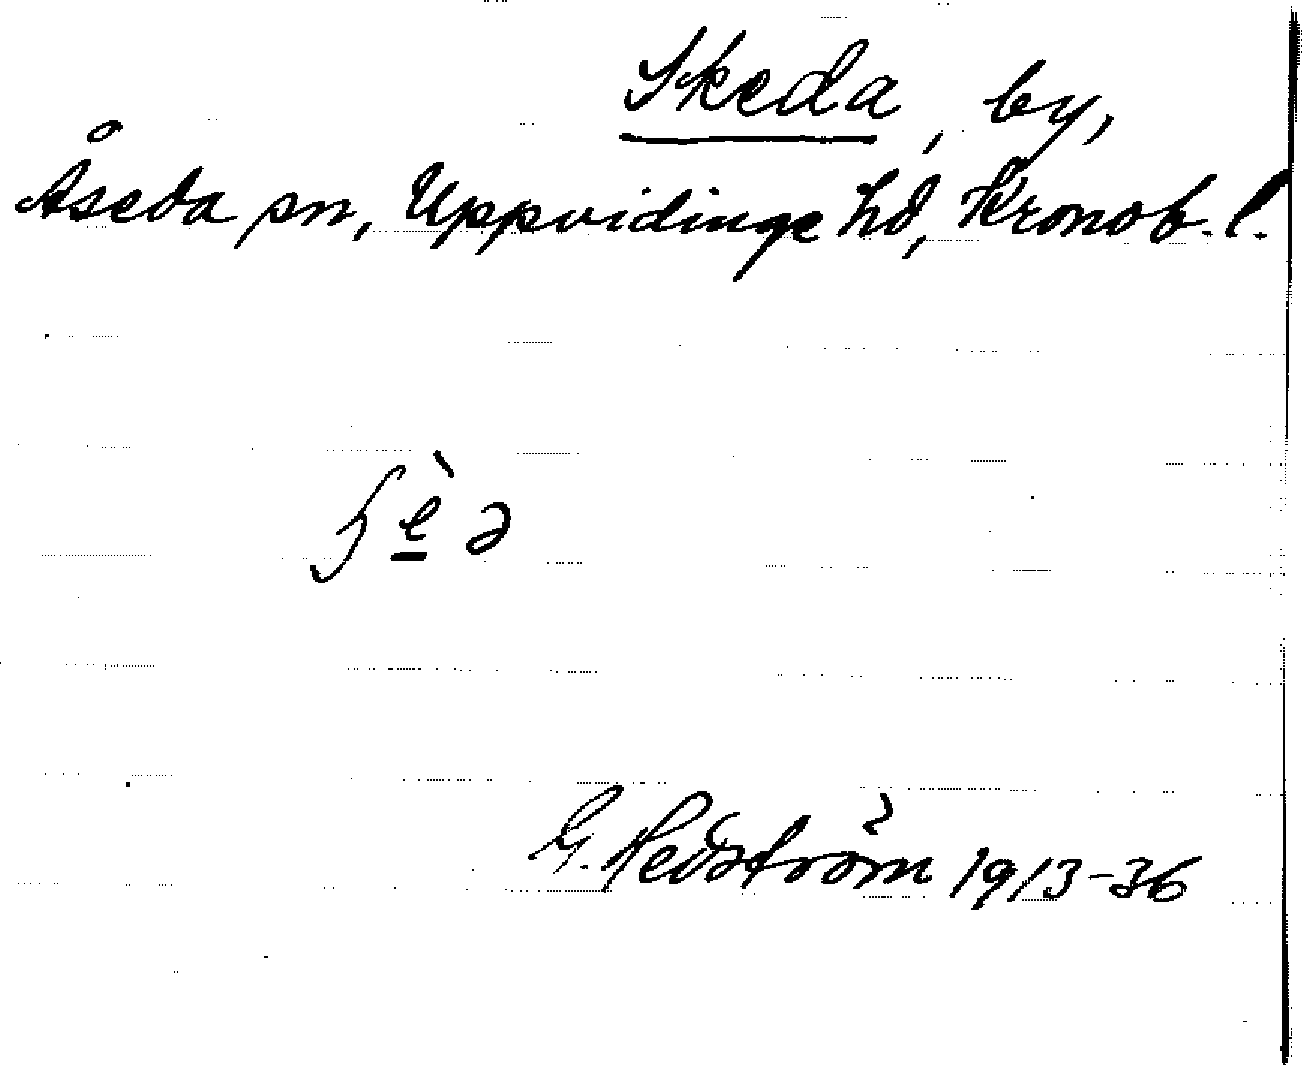 Skeda, by,
Åseda sn, Uppvidinge hd, Kronob. l.
ʃè̱ə
G. Hedström 1913-36